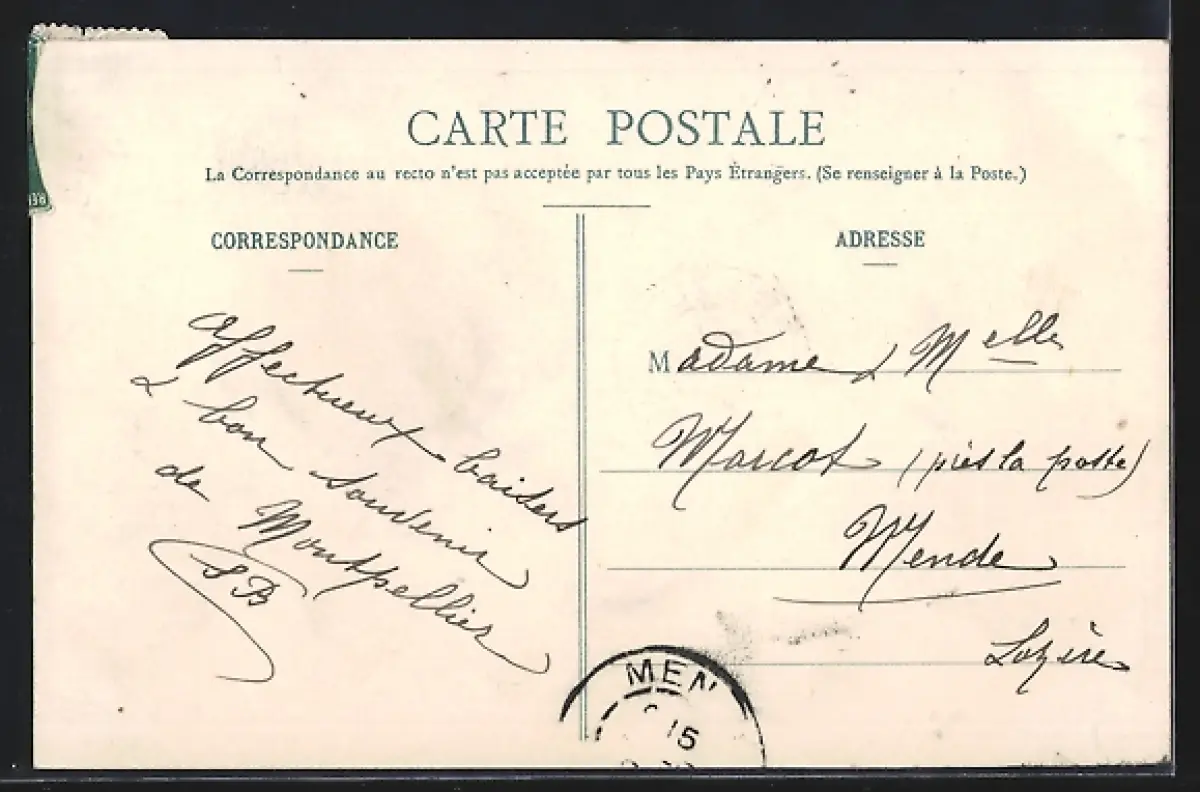 CARTE POSTALE
La Correspondance au recto n'est pas acceptée par tous les Pays Étrangers. (Se renseigner à la Poste.)
CORRESPONDANCE
Affectueux baisers
& bon souvenir
de Montpellier
SB
ADRESSE
Madame & Melle
Marcot (près la poste)
Mende
Lozère
MEN
15